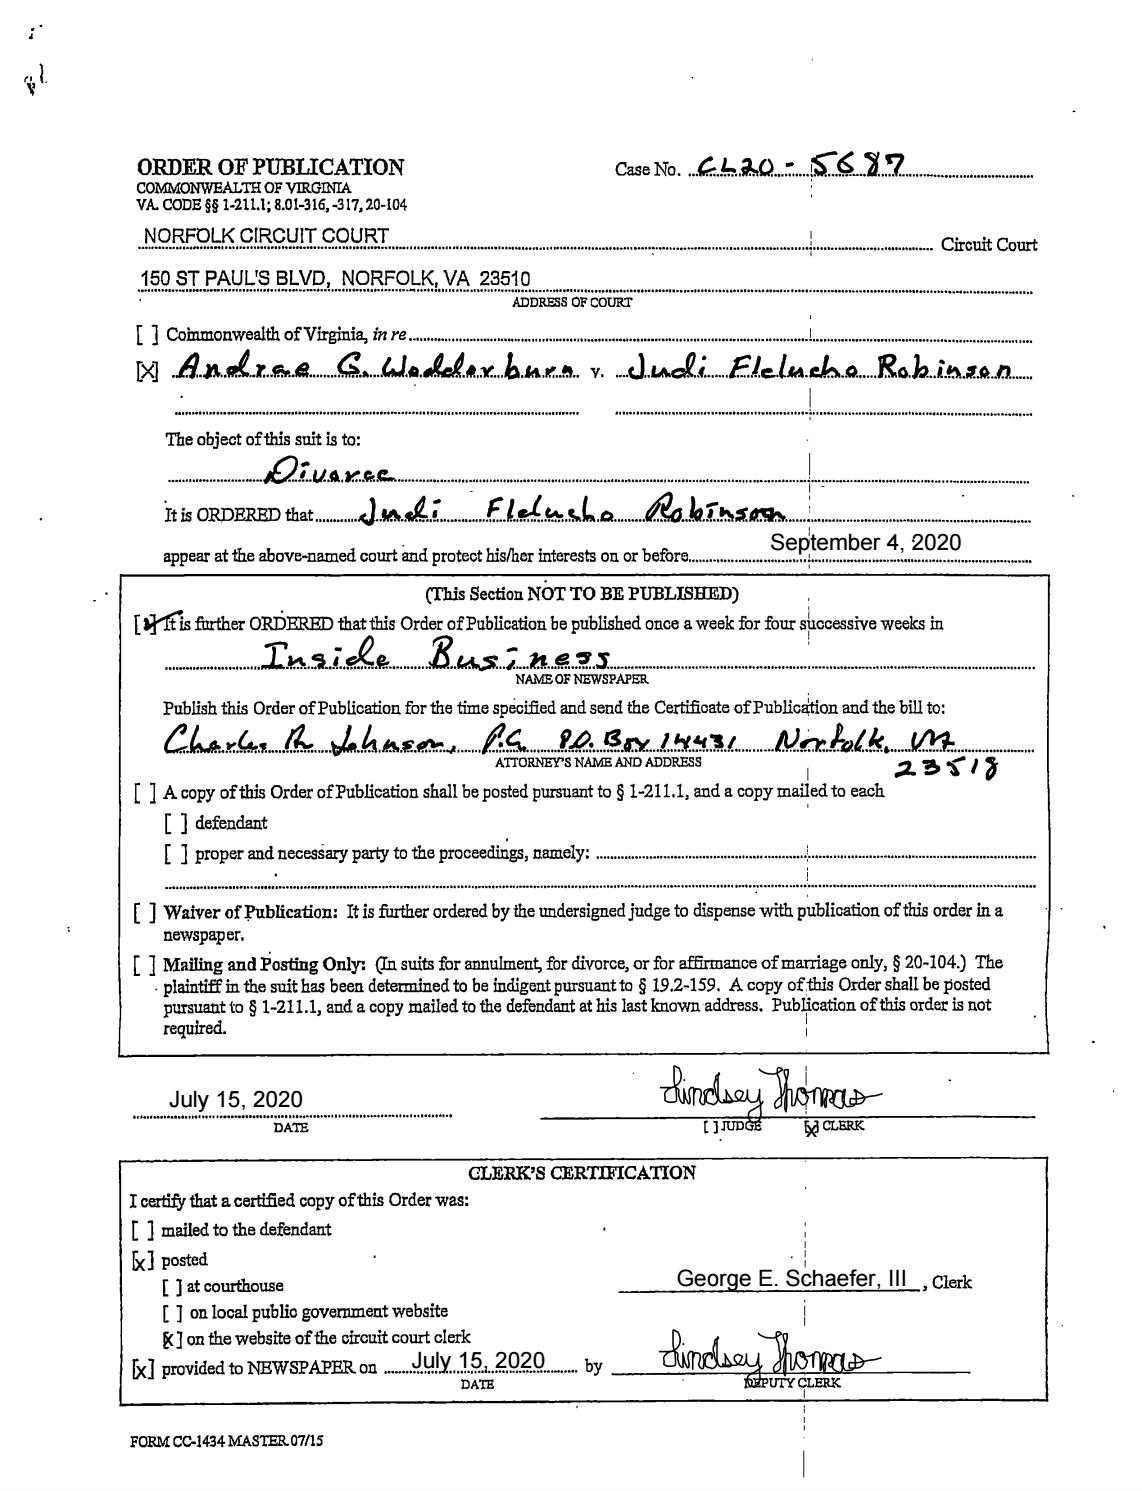 ORDER OF PUBLICATION
Case No. CL20 - 5687
COMMONWEALTH OF VIRGINIA
VA. CODE §§ 1-211.1; 8.01-316, -317, 20-104
NORFOLK CIRCUIT COURT Circuit Court
150 ST PAUL'S BLVD, NORFOLK, VA 23510
ADDRESS OF COURT
[ ] Commonwealth of Virginia, in re
[X] Andrae G. Wedderburn v. Judi Flelucho Robinson
The object of this suit is to:
Divorce
It is ORDERED that Judi Flelucho Robinson
appear at the above-named court and protect his/her interests on or before September 4, 2020
(This Section NOT TO BE PUBLISHED)
[x] It is further ORDERED that this Order of Publication be published once a week for four successive weeks in
Inside Business
NAME OF NEWSPAPER
Publish this Order of Publication for the time specified and send the Certificate of Publication and the bill to:
Charles R. Johnson, P.C. P.O. Box 14431 Norfolk, VA
ATTORNEY'S NAME AND ADDRESS
23518
[ ] A copy of this Order of Publication shall be posted pursuant to § 1-211.1, and a copy mailed to each
[ ] defendant
[ ] proper and necessary party to the proceedings, namely:
[ ] Waiver of Publication: It is further ordered by the undersigned judge to dispense with publication of this order in a
newspaper.
[ ] Mailing and Posting Only: (In suits for annulment, for divorce, or for affirmance of marriage only, § 20-104.) The
plaintiff in the suit has been determined to be indigent pursuant to § 19.2-159. A copy of this Order shall be posted
pursuant to § 1-211.1, and a copy mailed to the defendant at his last known address. Publication of this order is not
required.
July 15, 2020 Lindsey Thomas
DATE [ ] JUDGE [x] CLERK
CLERK'S CERTIFICATION
I certify that a certified copy of this Order was:
[ ] mailed to the defendant
[x] posted
[ ] at courthouse
George E. Schaefer, III, Clerk
[ ] on local public government website
[x] on the website of the circuit court clerk
[x] provided to NEWSPAPER on July 15, 2020 by Lindsey Thomas
DATE DEPUTY CLERK
FORM CC-1434 MASTER 07/15